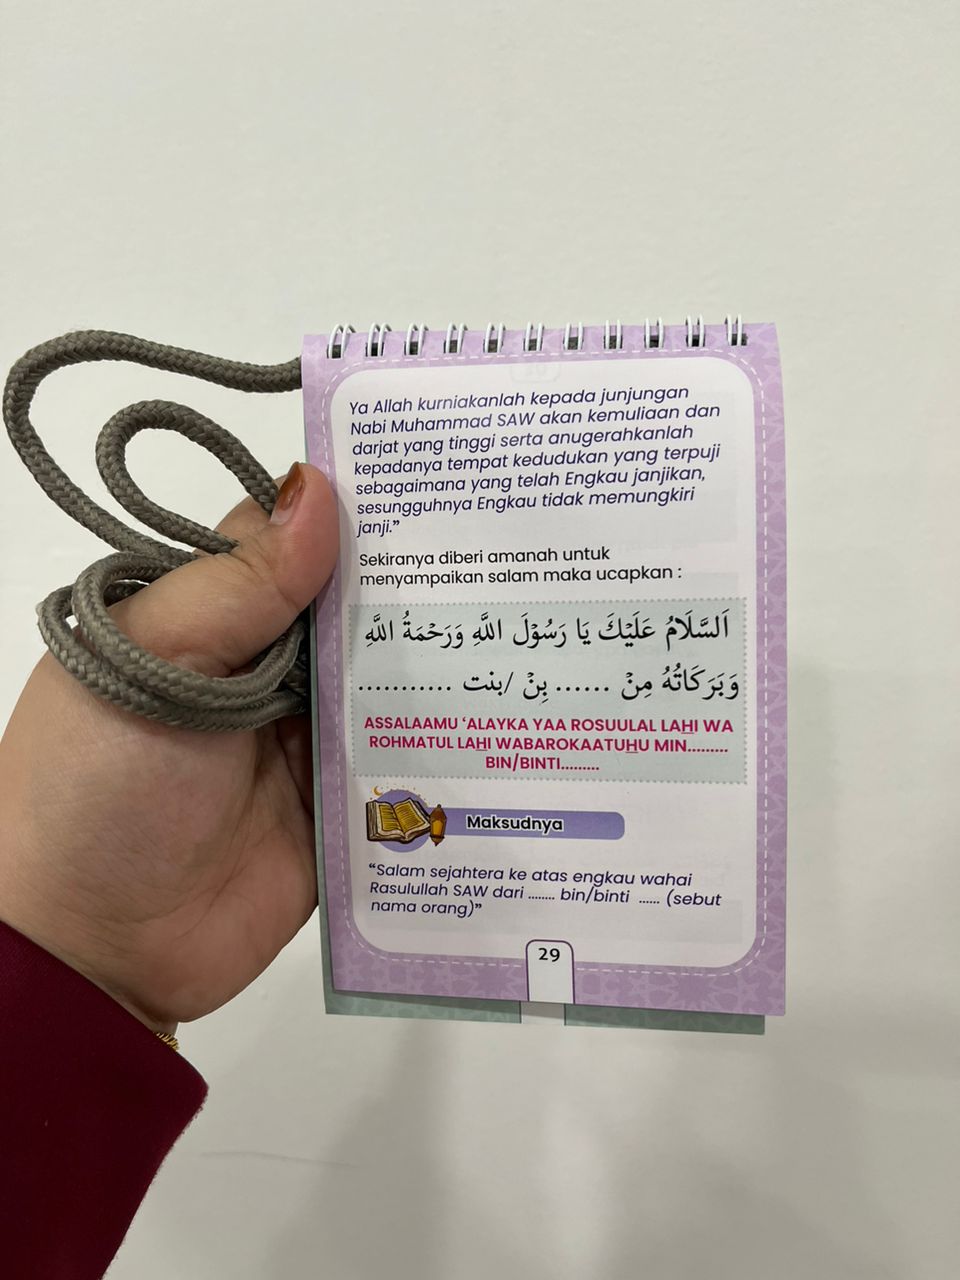 Ya Allah kurniakanlah kepada junjungan
Nabi Muhammad SAW akan kemuliaan dan
darjat yang tinggi serta anugerahkanlah
kepadanya tempat kedudukan yang terpuji
sebagaimana yang telah Engkau janjikan,
sesungguhnya Engkau tidak memungkiri
janji.”
Sekiranya diberi amanah untuk
menyampaikan salam maka ucapkan :
اَلسَّلَامُ عَلَيْكَ يَا رَسُوْلَ اللَّهِ وَرَحْمَةُ اللَّهِ
وَبَرَكَاتُهُ مِنْ ...... بِنْ /بنت ...........
ASSALAAMU ‘ALAYKA YAA ROSUULAL LAHI WA
ROHMATUL LAHI WABAROKAATUHU MIN.........
BIN/BINTI.........
Maksudnya
“Salam sejahtera ke atas engkau wahai
Rasulullah SAW dari ........ bin/binti ...... (sebut
nama orang)”
29